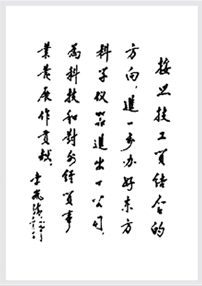 按照技工贸结合的
方向，進一步办好东方
科学仪器進出口公司，
为科技和对外经贸事
業发展作贡献。
李岚清